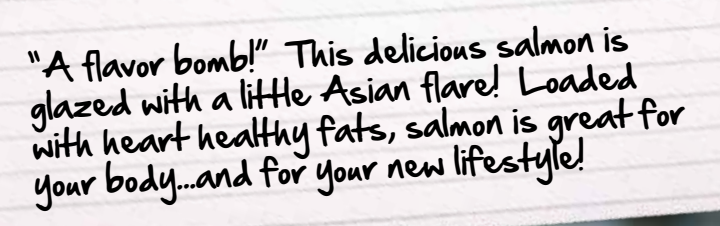 "A flavor bomb!" This delicious salmon is
glazed with a little Asian flare! Loaded
with heart healthy fats, salmon is great for
your body...and for your new lifestyle!